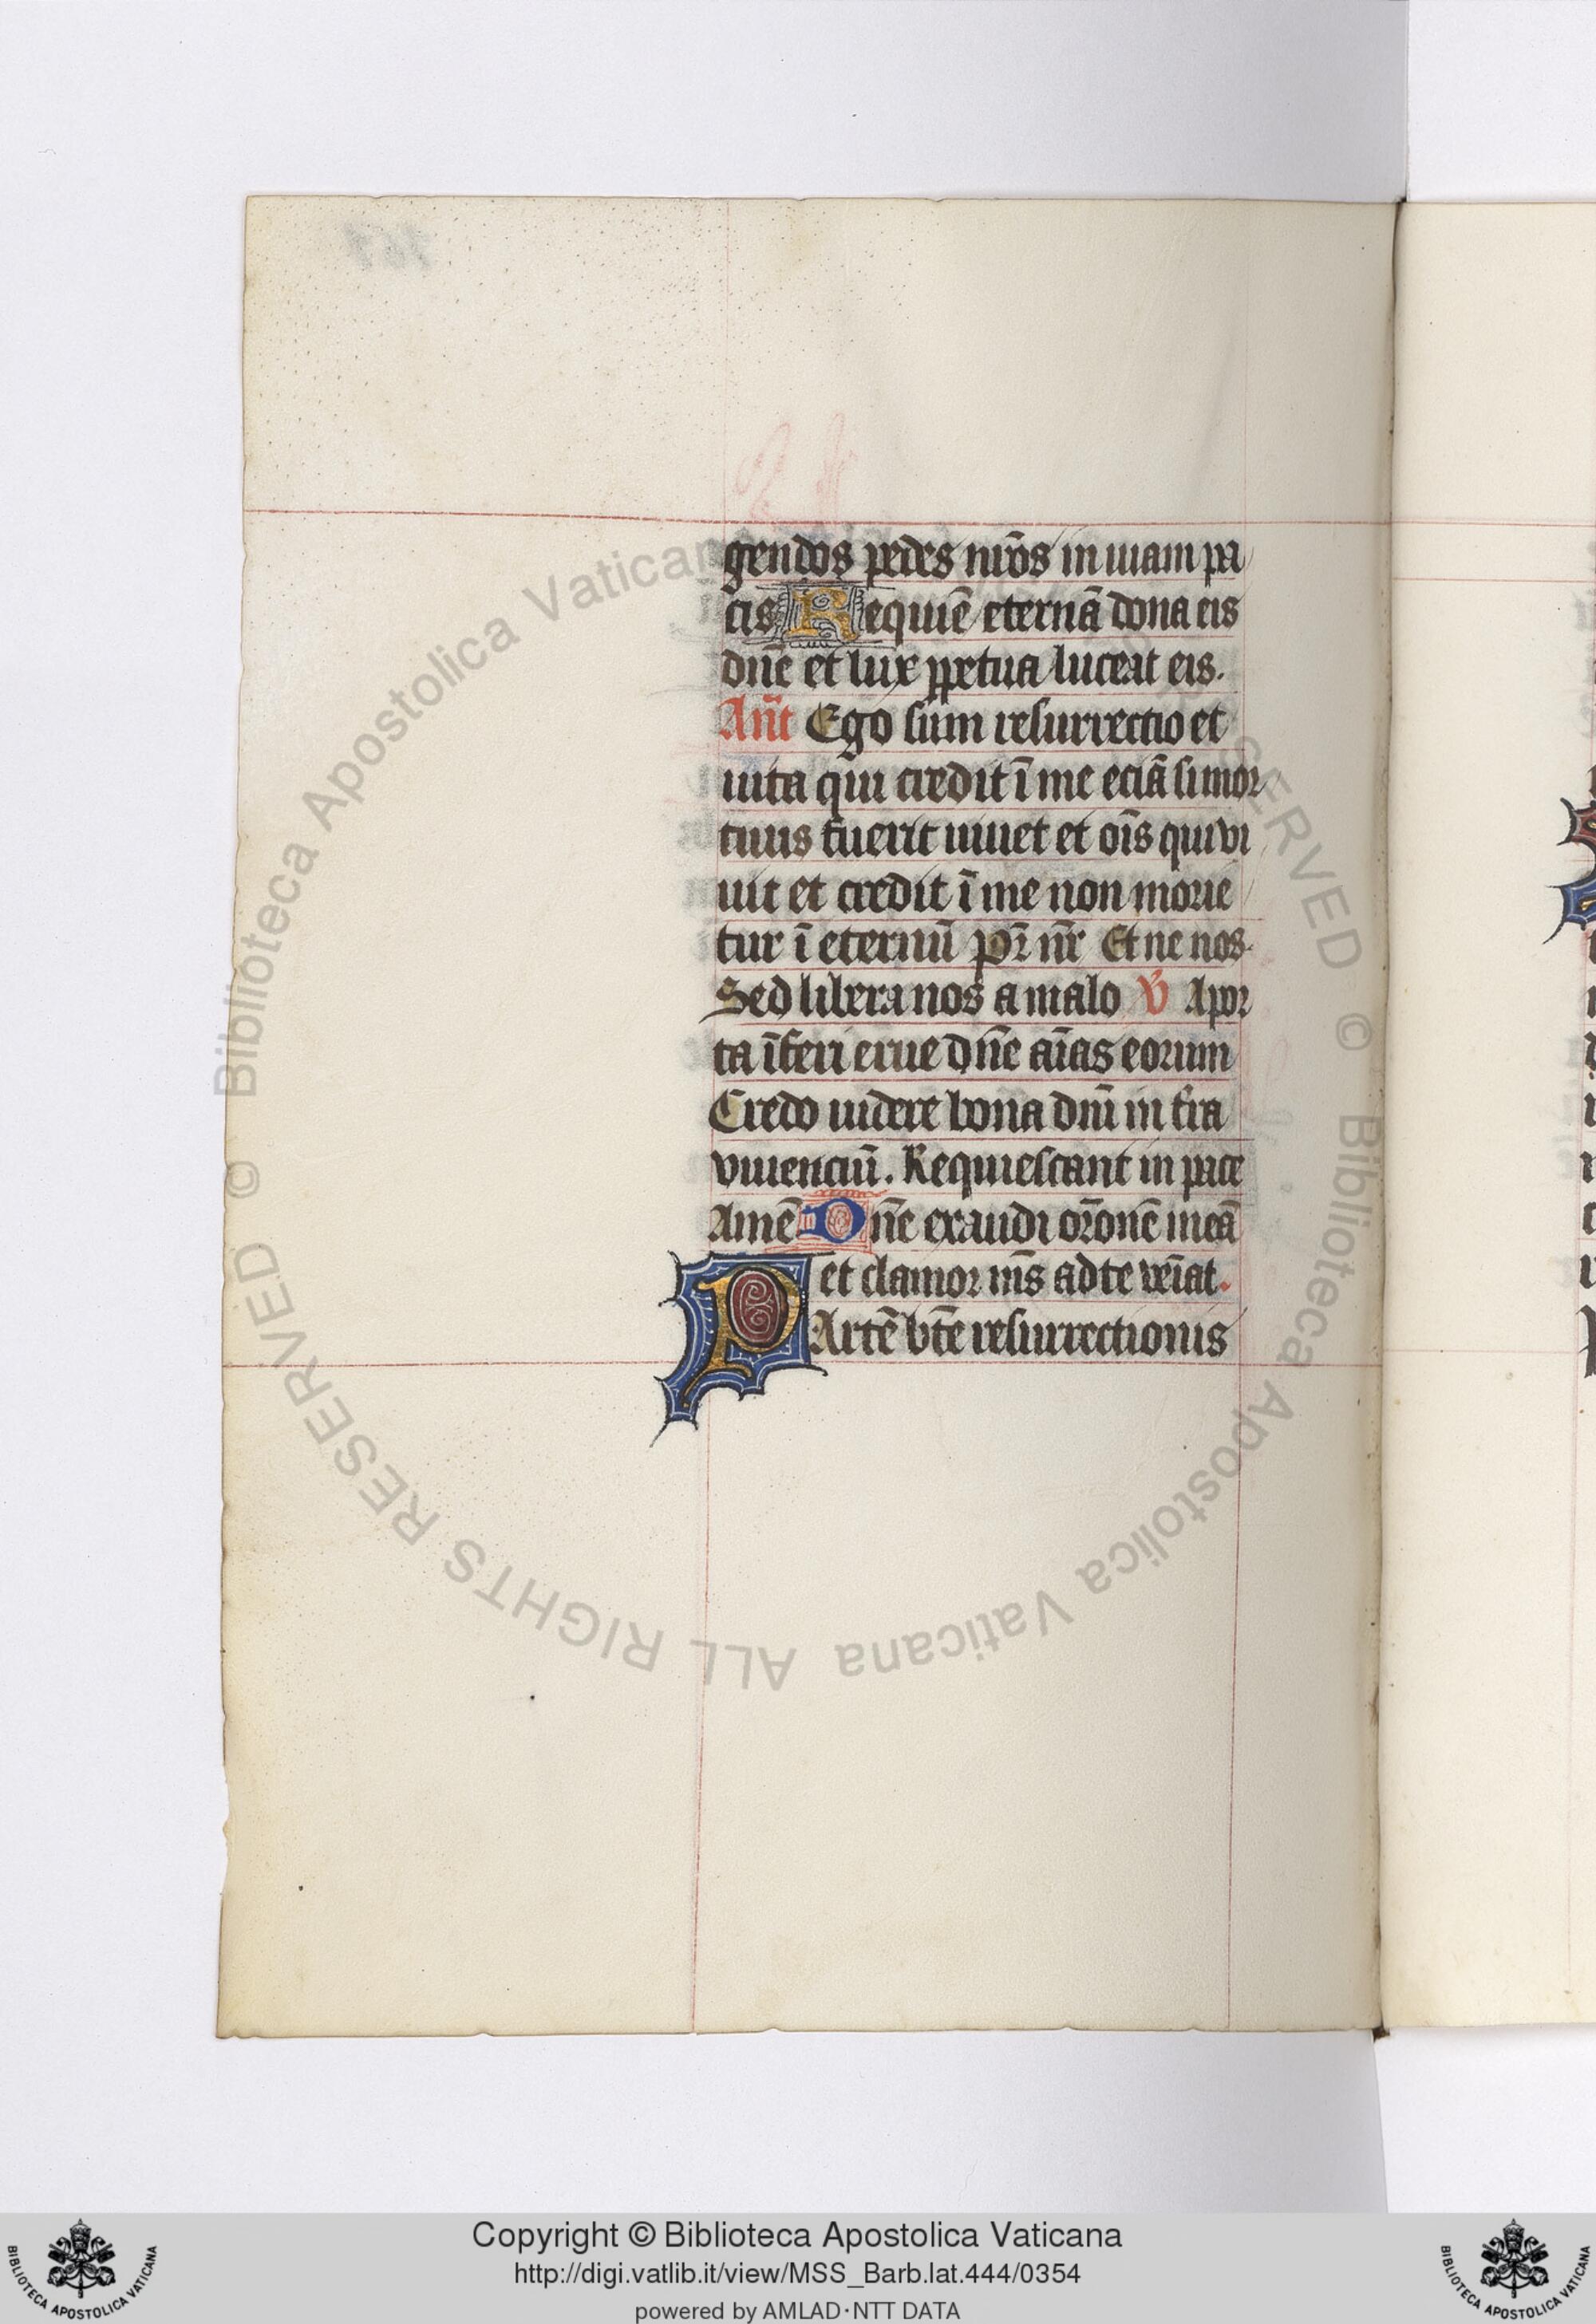 gendos pedes nr̄os in uiam pa
cis Requiē eternā dona eis
dn̄e et lux ꝑpetua luceat eis.
An̄t Ego sum resurrectio et
uita qui credit ī me eciā si mor
tuus fuerit uiuet et oīs qui vi
uit et credit ī me non morie
tur ī eternū pr̄ nr̄ Et ne nos
Sed libera nos a malo V̄ A por
ta īferi erue dn̄e aīas eorum
Credo uidere bona dnī in t̄ra
viuenciū. Requiescant in pace
Amē Dn̄e exaudi or̄onē meā
et clamor ms̄ ad te ven̄iat.
PArtē bt̄e resurrectionis
© Biblioteca Apostolica Vaticana ALL RIGHTS RESERVED
© Biblioteca Apostolica Vaticana ALL RIGHTS RESERVED
Copyright © Biblioteca Apostolica Vaticana
http://digi.vatlib.it/view/MSS_Barb.lat.444/0354
powered by AMLAD·NTT DATA
BIBLIOTECA APOSTOLICA VATICANA
BIBLIOTECA APOSTOLICA VATICANA